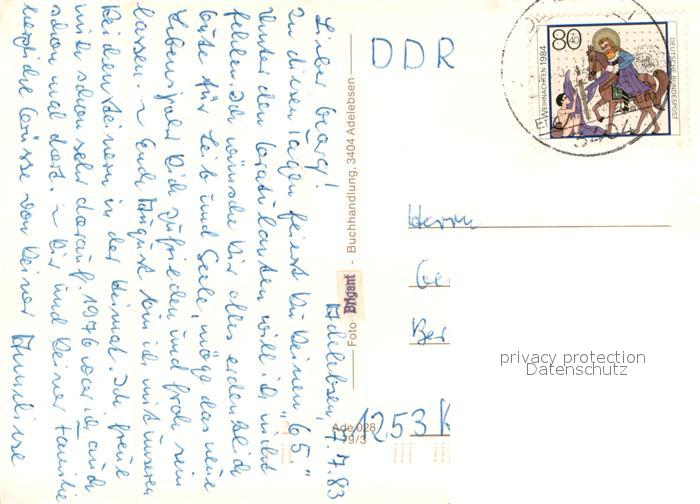 Adelebsen, 7.7.83
Lieber Georg!
In diesen Tagen feierst Du Deinen "65".
Unter den Gratulanten will ich nicht
fehlen. Ich wünsche Dir alles erdenklich
Gute für Leib und Seele, möge das neue
Lebensjahr Dich zufrieden und froh sein
lassen. ~ Ende August bin ich mit unseren
beiden in der Heimat. Ich freue
mich schon sehr darauf. 1976 war ich auch
schon mal dort. ~ Dir und Deiner Familie
herzliche Grüsse von Deiner Anneliese
Foto: Brigant - Buchhandlung, 3404 Adelebsen
Ade 028
79/3
DDR
Herrn
Ge
Ber
1253 K
80
+40
WEIHNACHTEN 1984
DEUTSCHE BUNDESPOST
3404
privacy protection
Datenschutz